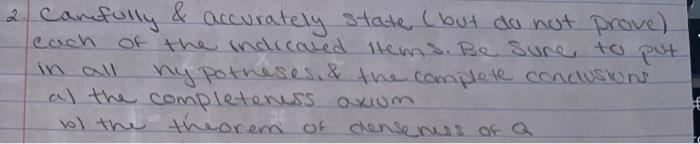 2. Carefully & accurately state (but do not prove)
each of the indicated items. Be sure to put
in all hypotheses, & the complete conclusions
a) the completeness axiom
b) the theorem of denseness of Q